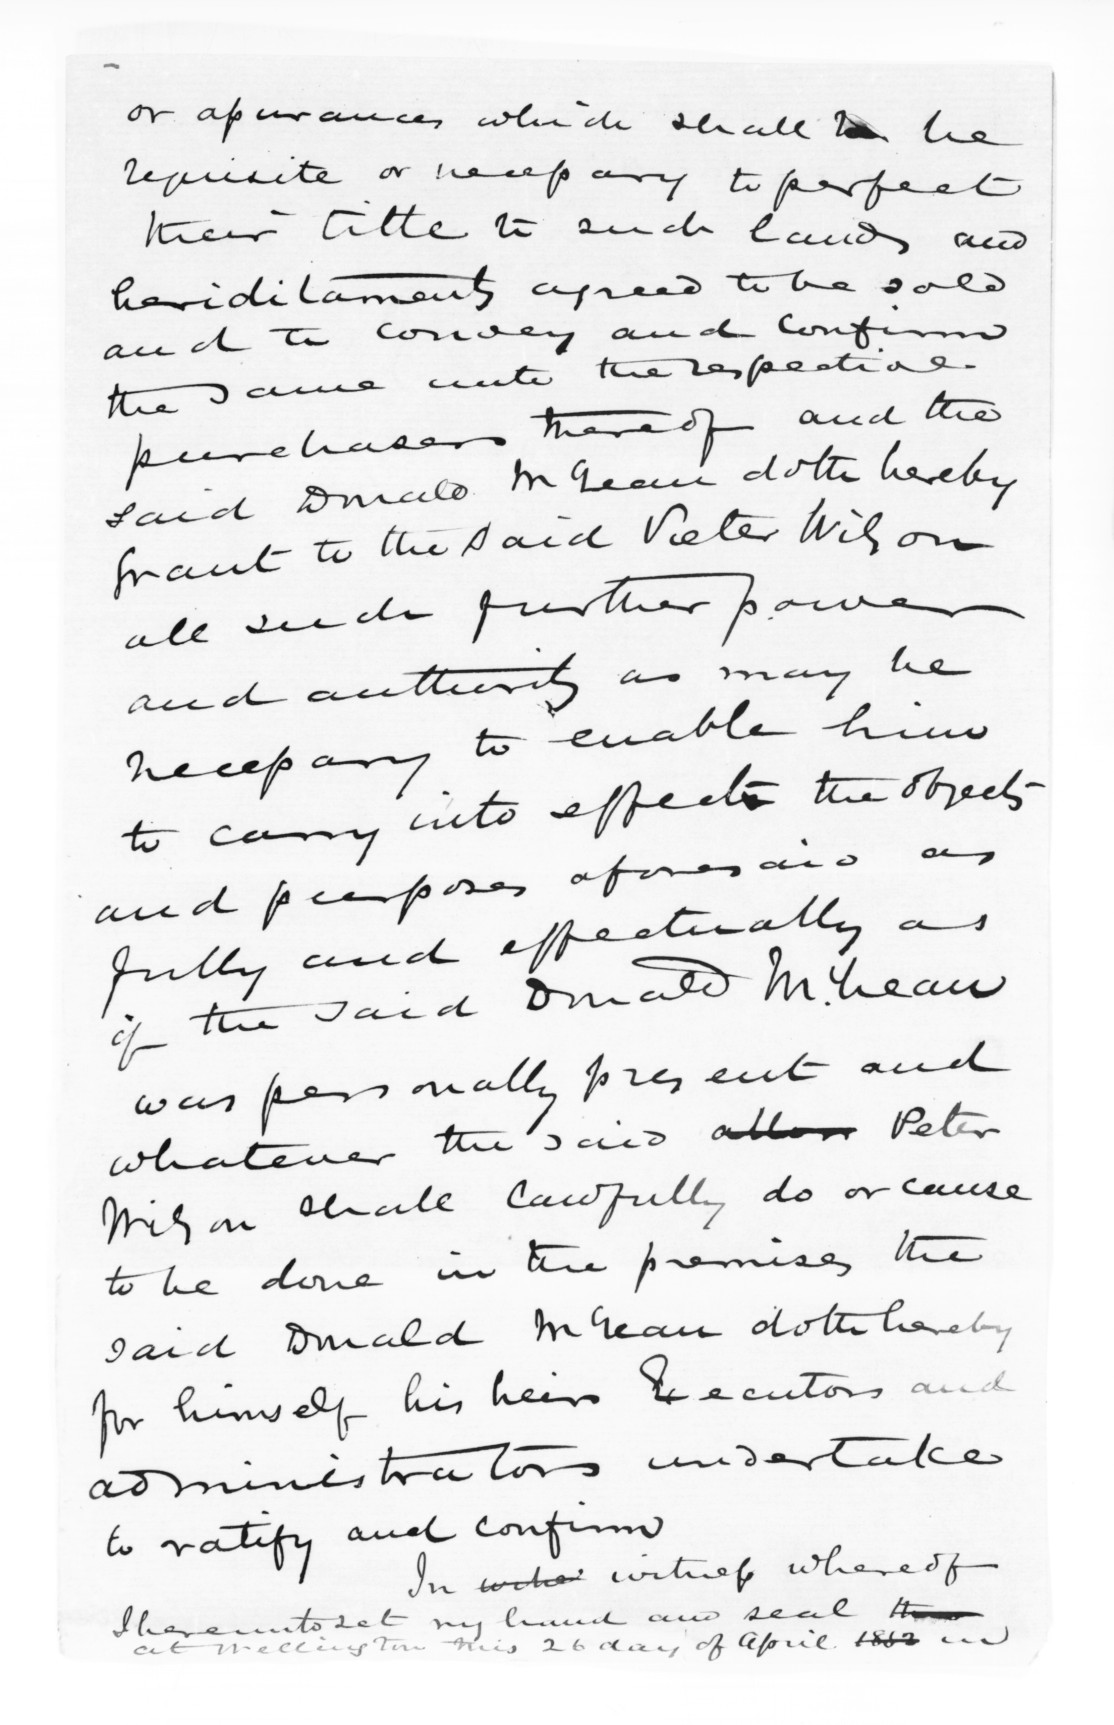 or assurances which shall be
requisite or necessary to perfect
their title to such lands and
heriditaments agreed to be sold
and to convey and confirm
the same unto the respective
purchasers thereof and the
said Donald McLean doth hereby
grant to the said Peter Wilson
all such further power
and authority as may be
necessary to enable him
to carry into effect the objects
and purposes aforesaid as
fully and effectually as
if the said Donald McLean
was personally present and
whatever the said Peter
Wilson shall lawfully do or cause
to be done in the premises the
said Donald McLean doth hereby
for himself his heirs Executors and
administrators undertake
to ratify and confirm
In witness whereof
I hereunto set my hand and seal
at Wellington this 26 day of April 1862 in